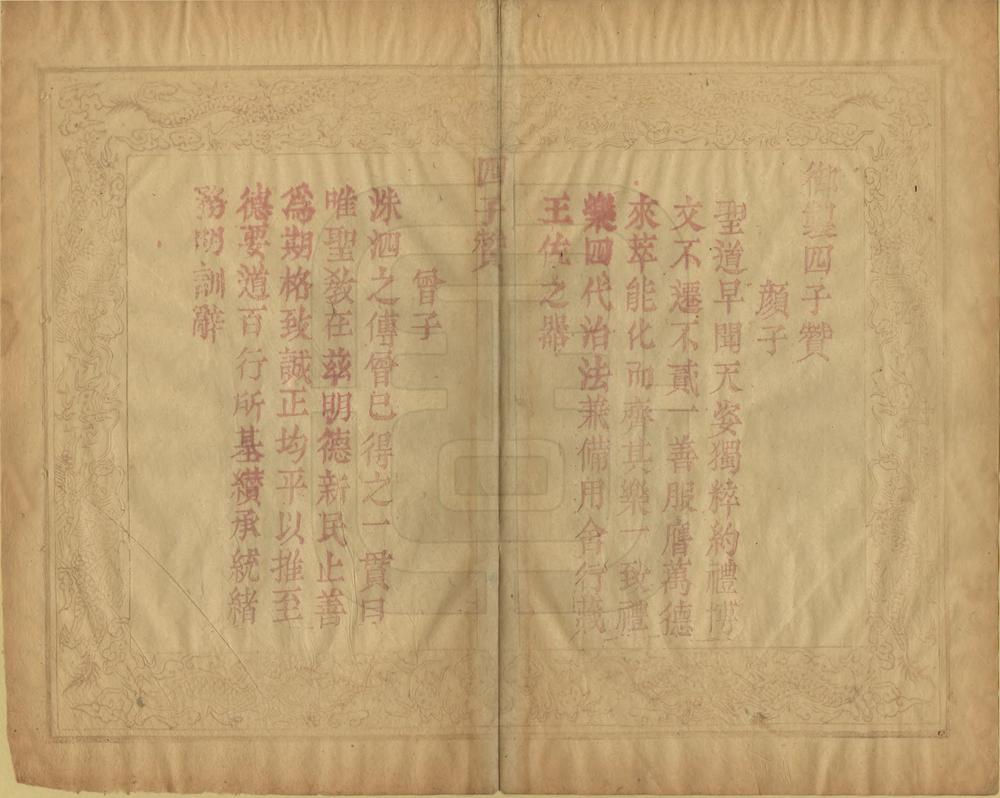 御製四子贊
顏子
聖道早聞天姿獨粹約禮博
文不遷不貳一善服膺萬德
來萃能化而齊其樂一致禮
樂四代治法兼備用舍行藏
王佐之器
四子贊
曾子
洙泗之傳魯已得之一貫曰
唯聖敎在茲明德新民止善
為期格致誠正均平以推至
德要道百行所基纘承統緒
脩明訓辭